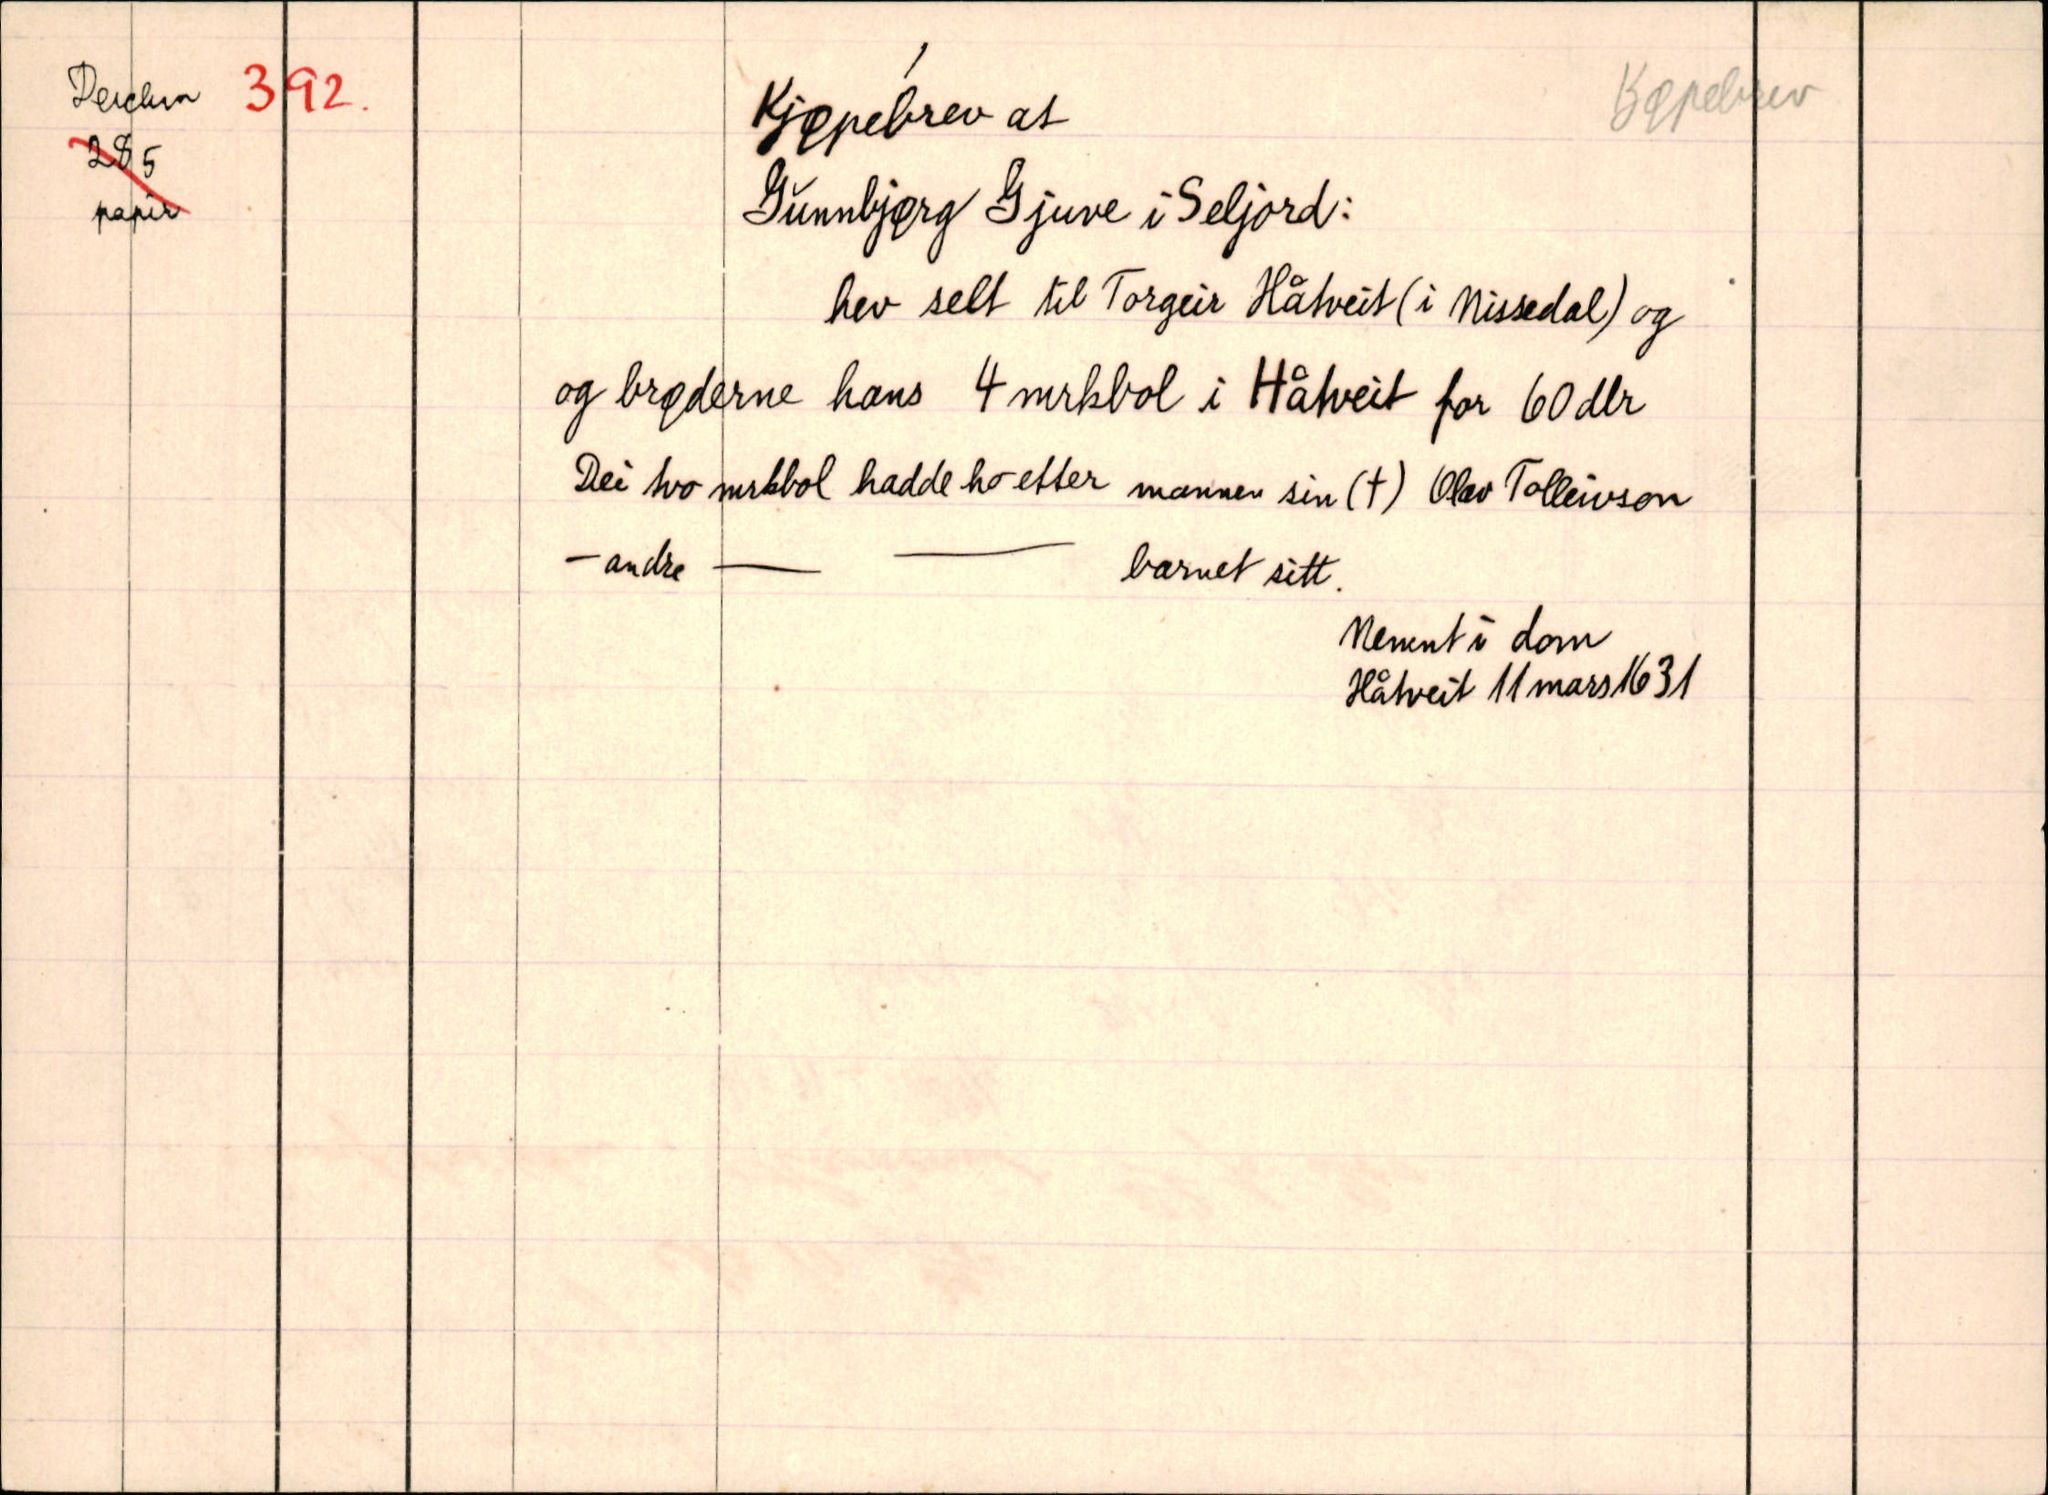 392.
285
papir
Kjøpebrev
Kjøpebrev at
Gunnbjørg Gjuve i Seljord:
hev selt til Torgeir Håtveit (i Nissedal) og
og brøderne hans 4 mrkbol i Håtveit for 60 dlr
Dei tvo mrkbol hadde ho etter mannen sin (†) Olav Tolleivson
— andre — — barnet sitt.
Nemnt i dom
Håtveit 11 mars 1631